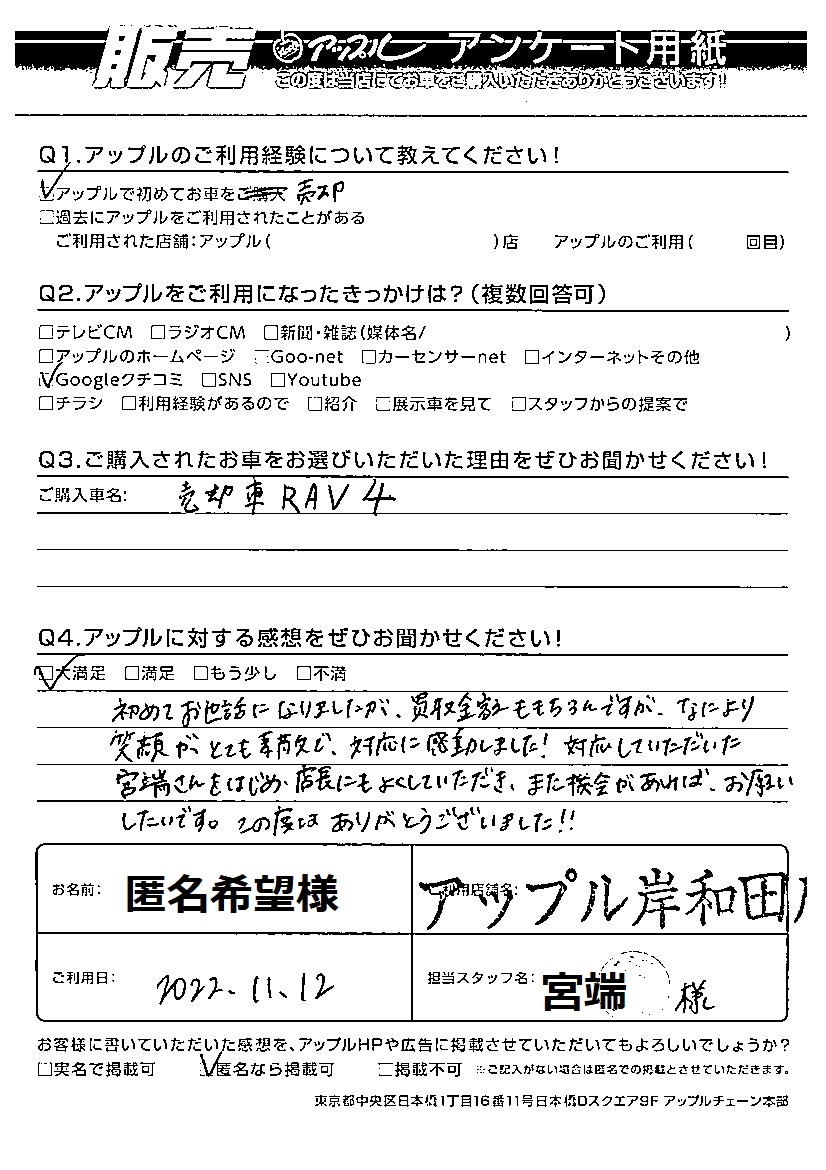 販売 アップル アンケート用紙
この度は当店にてお車をご購入いただきありがとうございます!
Q1.アップルのご利用経験について教えてください!
アップルで初めてお車をご購入 売却
□過去にアップルをご利用されたことがある
ご利用された店舗:アップル( )店 アップルのご利用( 回目)
Q2.アップルをご利用になったきっかけは?(複数回答可)
□テレビCM □ラジオCM □新聞・雑誌(媒体名/ )
□アップルのホームページ □Goo-net □カーセンサーnet □インターネットその他
☑Googleクチコミ □SNS □Youtube
□チラシ □利用経験があるので □紹介 □展示車を見て □スタッフからの提案で
Q3.ご購入されたお車をお選びいただいた理由をぜひお聞かせください!
ご購入車名: 売却車 RAV4
Q4.アップルに対する感想をぜひお聞かせください!
☑大満足 □満足 □もう少し □不満
初めてお世話になりましたが、買取金額ももちろんですが、なにより
笑顔がとても素敵で、対応に感動しました! 対応していただいた
宮端さんをはじめ、店長にもよくしていただき、また機会があれば、お願い
したいです。この度はありがとうございました!!
お名前: 匿名希望様 ご利用店舗名: アップル岸和田
ご利用日: 2022.11.12 担当スタッフ名: 宮端 様
お客様に書いていただいた感想を、アップルHPや広告に掲載させていただいてもよろしいでしょうか?
□実名で掲載可 ☑匿名なら掲載可 □掲載不可 ※ご記入がない場合は匿名での掲載とさせていただきます。
東京都中央区日本橋1丁目16番11号日本橋Dスクエア9F アップルチェーン本部